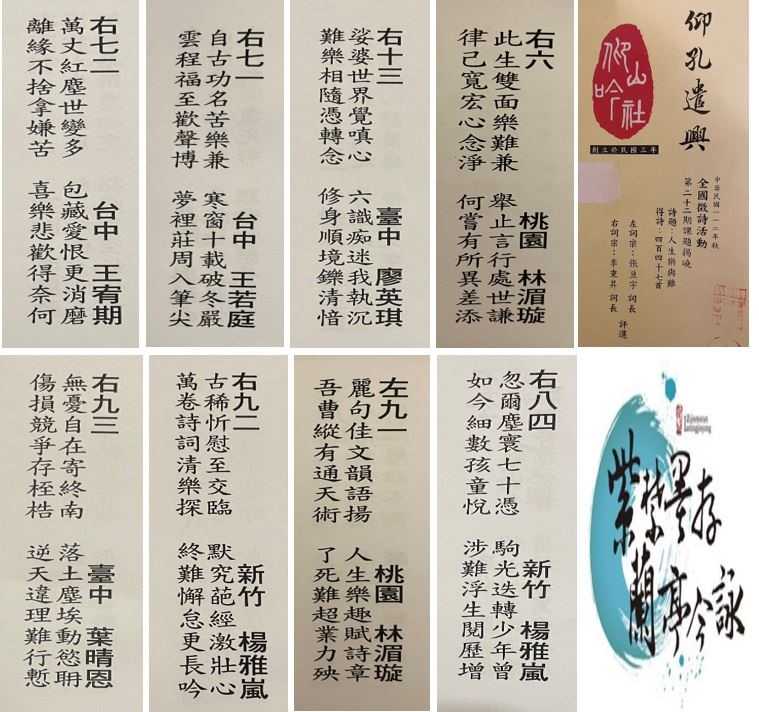 右七二 台中 王宥期
萬丈紅塵世變多 包藏愛恨更消磨
離緣不捨拿嫌苦 喜樂悲歡得奈何
右七一 台中 王若庭
自古功名苦樂兼 寒窗十載破冬嚴
雲程福至歡聲博 夢裡莊周入筆尖
右十三 臺中 廖英琪
娑婆世界覺嗔心 六識痴迷我執沉
難樂相隨憑轉念 修身順境鑠清愔
右六 桃園 林湄璇
此生雙面樂難兼 舉止言行處世謙
律己寬宏心念淨 何嘗有所異差添
仰孔遣興
中華民國一一二年秋
全國徵詩活動
第二十二期課題揭曉
詩題：人生樂與難
得詩：四百四十七首
左詞宗：張亶宇 詞長
右詞宗：李秉昇 詞長
評選
仰山吟社
創立於民國三年
右九三 臺中 葉晴恩
無憂自在寄終南 落土塵埃動慾聃
傷損競爭存桎梏 逆天違理難行慙
右九二 新竹 楊雅嵐
古稀忻慰至交臨 默究葩經激壯心
萬卷詩詞清樂探 終難懈怠更長吟
左九一 桃園 林湄璇
麗句佳文韻語揚 人生樂趣賦詩章
吾曹縱有通天術 了死難超業力殃
右八四 新竹 楊雅嵐
忽爾塵寰七十憑 駒光迭轉少年曾
如今細數孩童悅 涉難浮生閱歷增
紫 墨存
蘭亭今詠